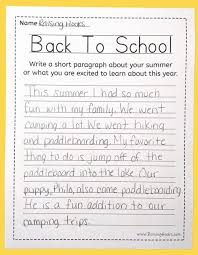 Name Raising Hooks
Back To School
Write a short paragraph about your summer
or what you are excited to learn about this year.
This summer I had so much
fun with my family. We went
camping a lot. We went hiking
and paddleboarding. My favorite
thing to do is jump off of the
paddleboard into the lake. Our
puppy, Philn, also came paddleboarding.
He is a fun addition to our
camping trips.
www.RaisingHooks.com